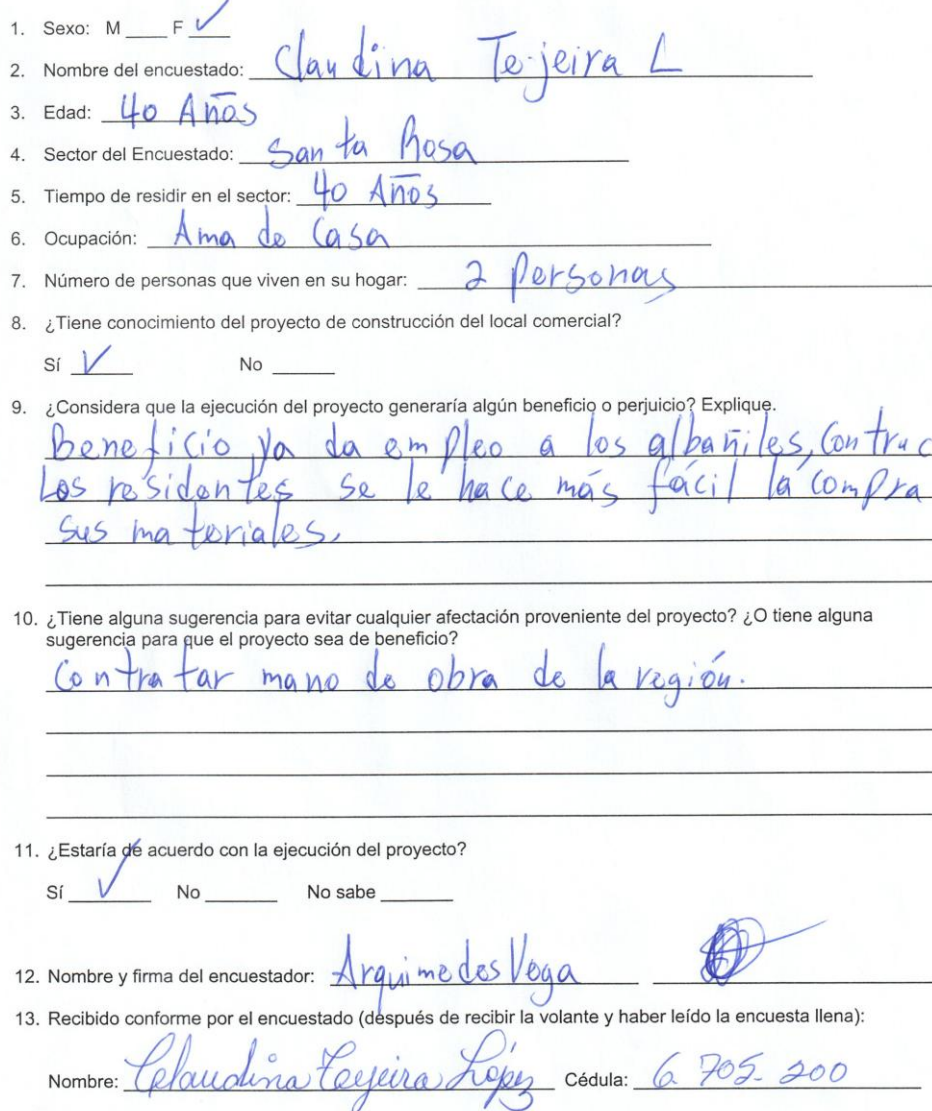 1. Sexo: M ____ F ✓
2. Nombre del encuestado: Claudina Tejeira L
3. Edad: 40 Años
4. Sector del Encuestado: Santa Rosa
5. Tiempo de residir en el sector: 40 Años
6. Ocupación: Ama de Casa
7. Número de personas que viven en su hogar: 2 Personas
8. ¿Tiene conocimiento del proyecto de construcción del local comercial?
Sí ✓ No ____
9. ¿Considera que la ejecución del proyecto generaría algún beneficio o perjuicio? Explique.
Beneficio ya da empleo a los albañiles, Contruc
Los residentes se le hace más fácil la compra
sus materiales.
10. ¿Tiene alguna sugerencia para evitar cualquier afectación proveniente del proyecto? ¿O tiene alguna
sugerencia para que el proyecto sea de beneficio?
Contratar mano de obra de la región.
11. ¿Estaría de acuerdo con la ejecución del proyecto?
Sí ✓ No ____ No sabe ____
12. Nombre y firma del encuestador: Arquimedes Vega
13. Recibido conforme por el encuestado (después de recibir la volante y haber leído la encuesta llena):
Nombre: Claudina Tejeira López Cédula: 6-705-200